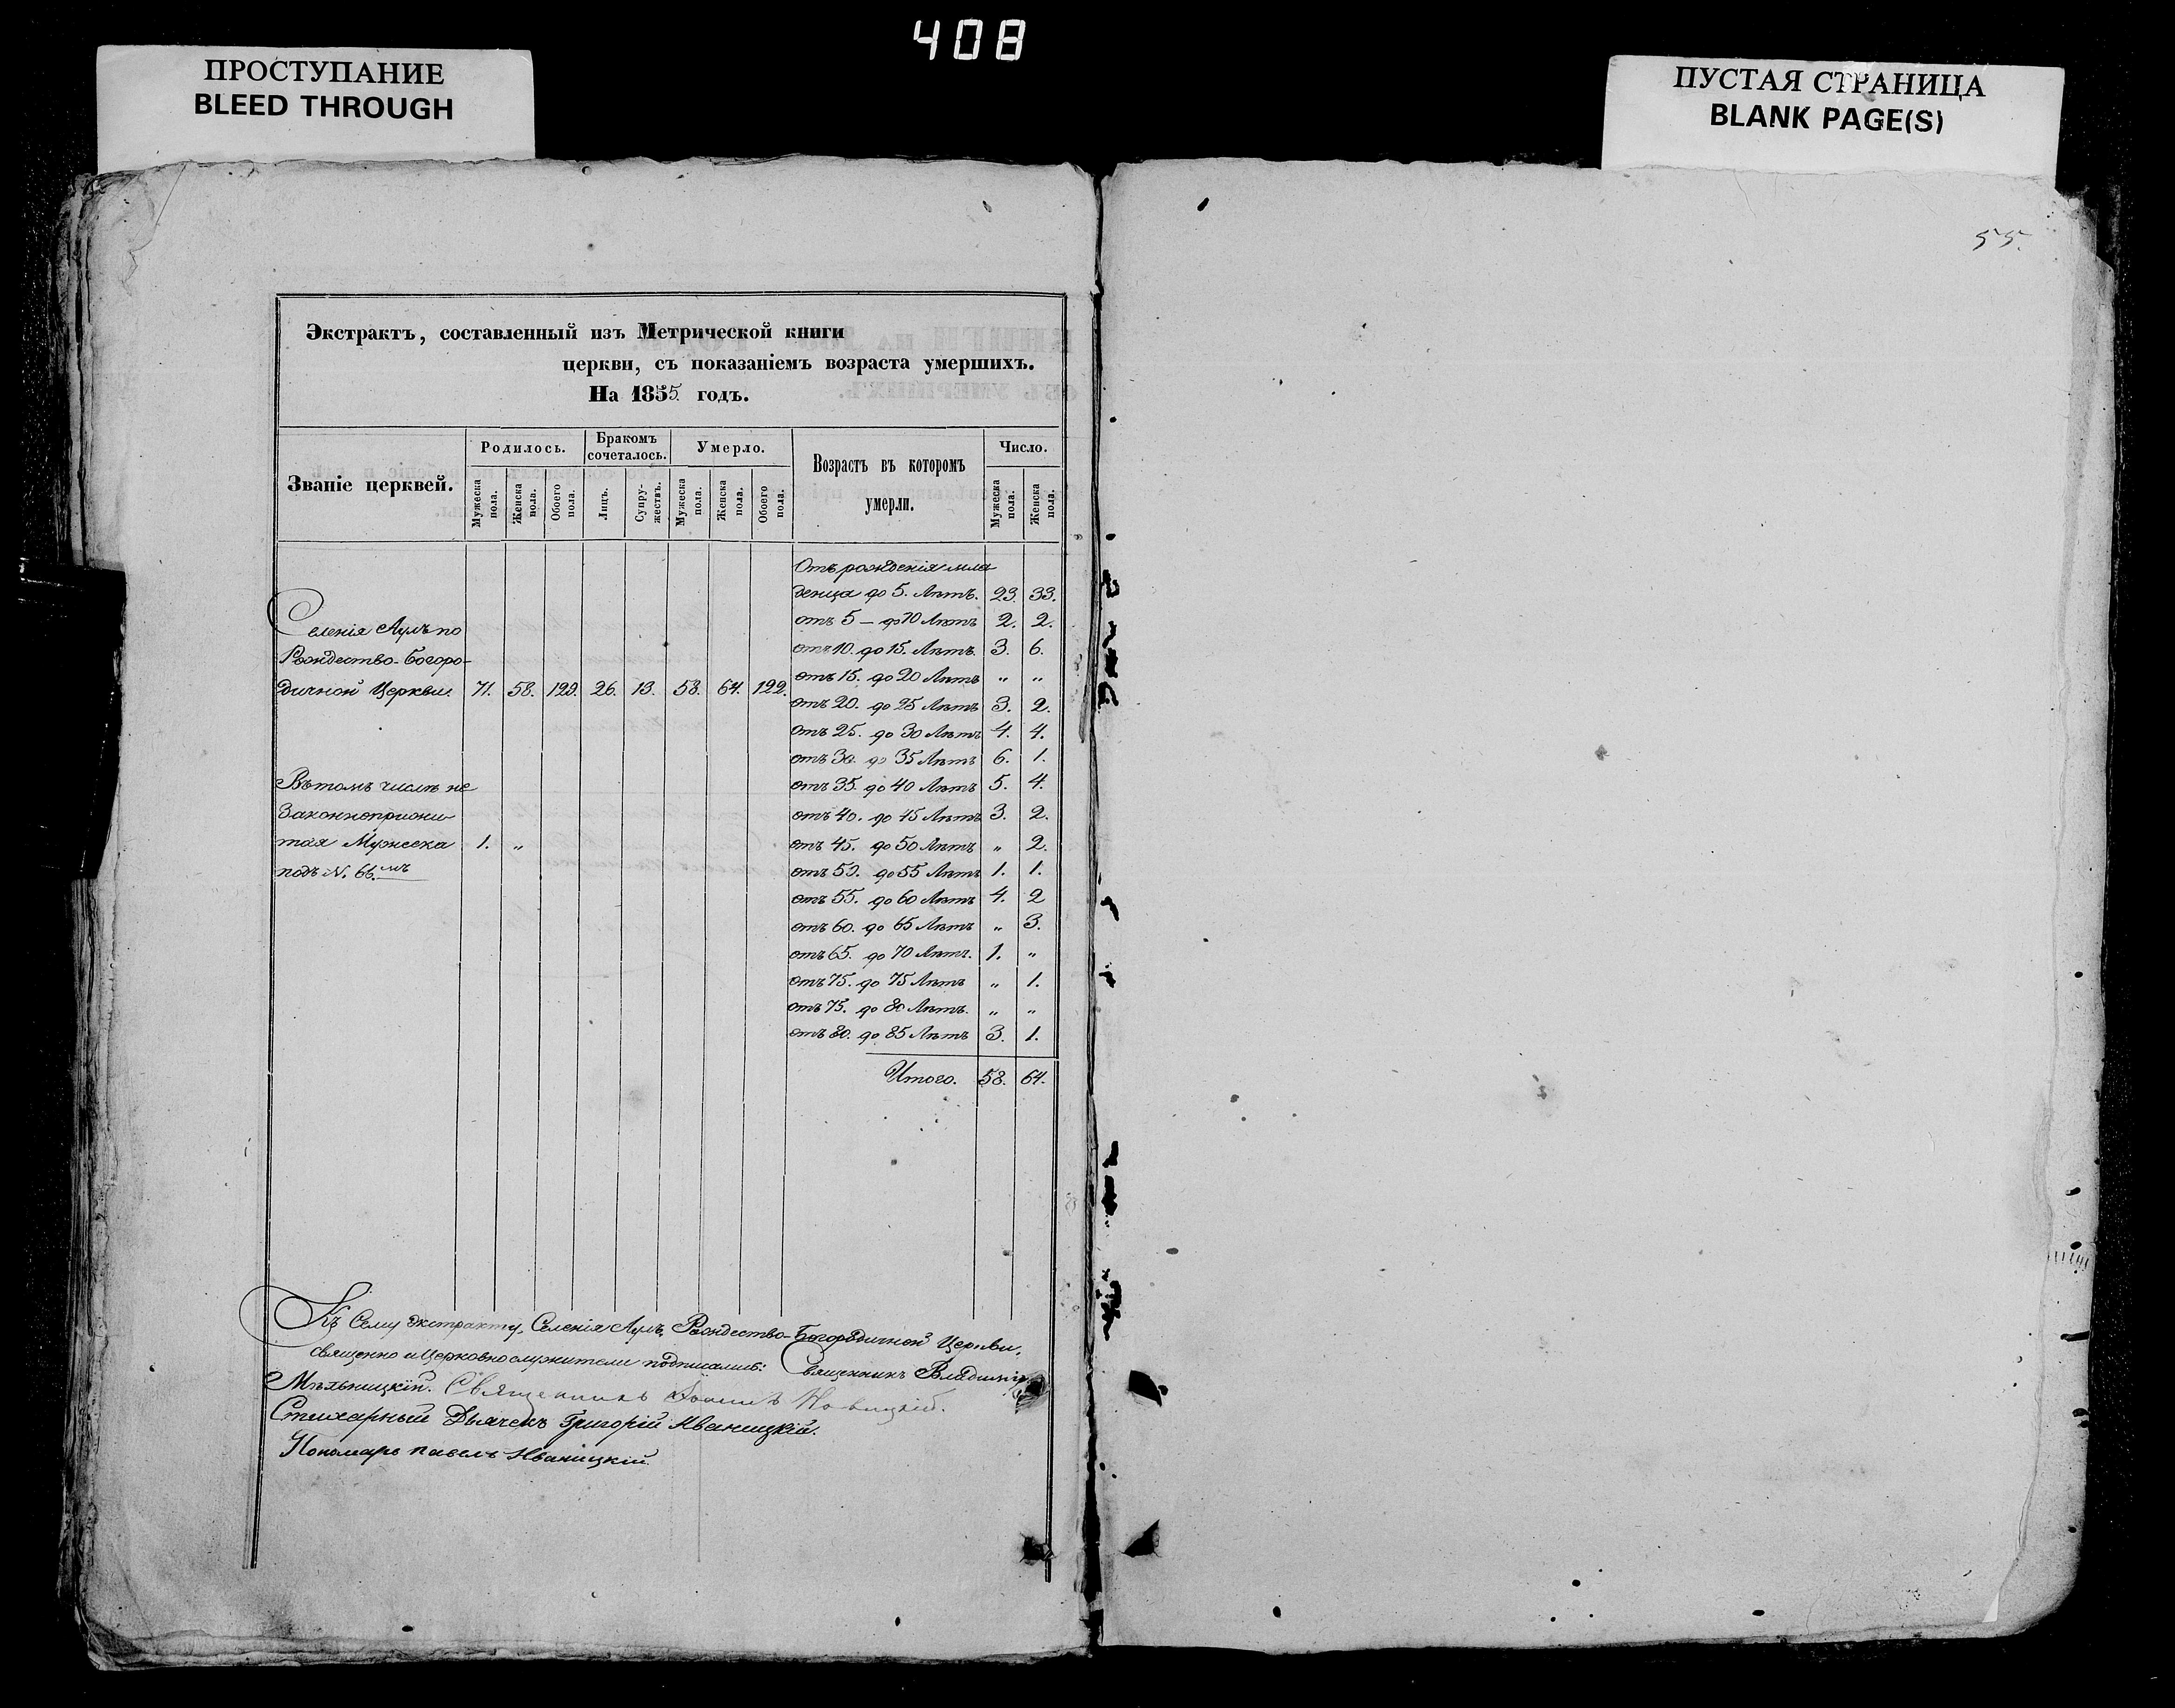 408
ПРОСТУПАНИЕ
BLEED THROUGH
ПУСТАЯ СТРАНИЦА
BLANK PAGE(S)
55.
Экстрактъ, составленный изъ Метрической книги
церкви, съ показаніемъ возраста умершихъ.
На 1855 годъ.
Званіе церквей. Родилось. Бракомъ сочеталось. Умерло. Возрастъ въ которомъ умерли. Число.
Мужеска пола. Женска пола. Обоего пола. Лицъ. Супружествъ. Мужеска пола. Женска пола. Обоего пола. Мужеска пола. Женска пола.
Отъ рожденія мла
денца до 5. Лѣтъ. 23. 33.
отъ 5 — до 10 Лѣтъ 2. 2.
отъ 10. до 15. Лѣтъ. 3. 6.
отъ 15. до 20 Лѣтъ „ „
отъ 20. до 25 Лѣтъ 3. 2.
отъ 25. до 30 Лѣтъ 4. 4.
отъ 30. до 35 Лѣтъ 6. 1.
отъ 35. до 40 Лѣтъ 5. 4.
отъ 40. до 45 Лѣтъ 3. 2.
отъ 45. до 50 Лѣтъ „ 2.
отъ 50. до 55 Лѣтъ 1. 1.
отъ 55. до 60 Лѣтъ 4. 2
отъ 60. до 65 Лѣтъ „ 3.
отъ 65. до 70 Лѣтъ. 1. „
отъ 75. до 75 Лѣтъ „ 1.
отъ 75. до 80 Лѣтъ. „ „
отъ 80. до 85 Лѣтъ 3. 1.
Итого. 58. 64.
Селенія Аулъ по
Рождество-Богоро-
дичной Церкви. 71. 58. 129. 26. 13. 58. 64. 122.
Въ томъ числѣ не
Законноприжи
тая Мужеска 1. „
подъ N. 66.мъ
Къ Сему Экстракту, Селенія Аулъ, Рождество-Богородичной Церкви,
священно и Церковнослужители подписались: Священникъ Владиміръ
Мѣльницкій. Священникъ Новицкій.
Стихарный Дьячекъ Григорій Иваницкій.
Пономарь павелъ Иваницкій